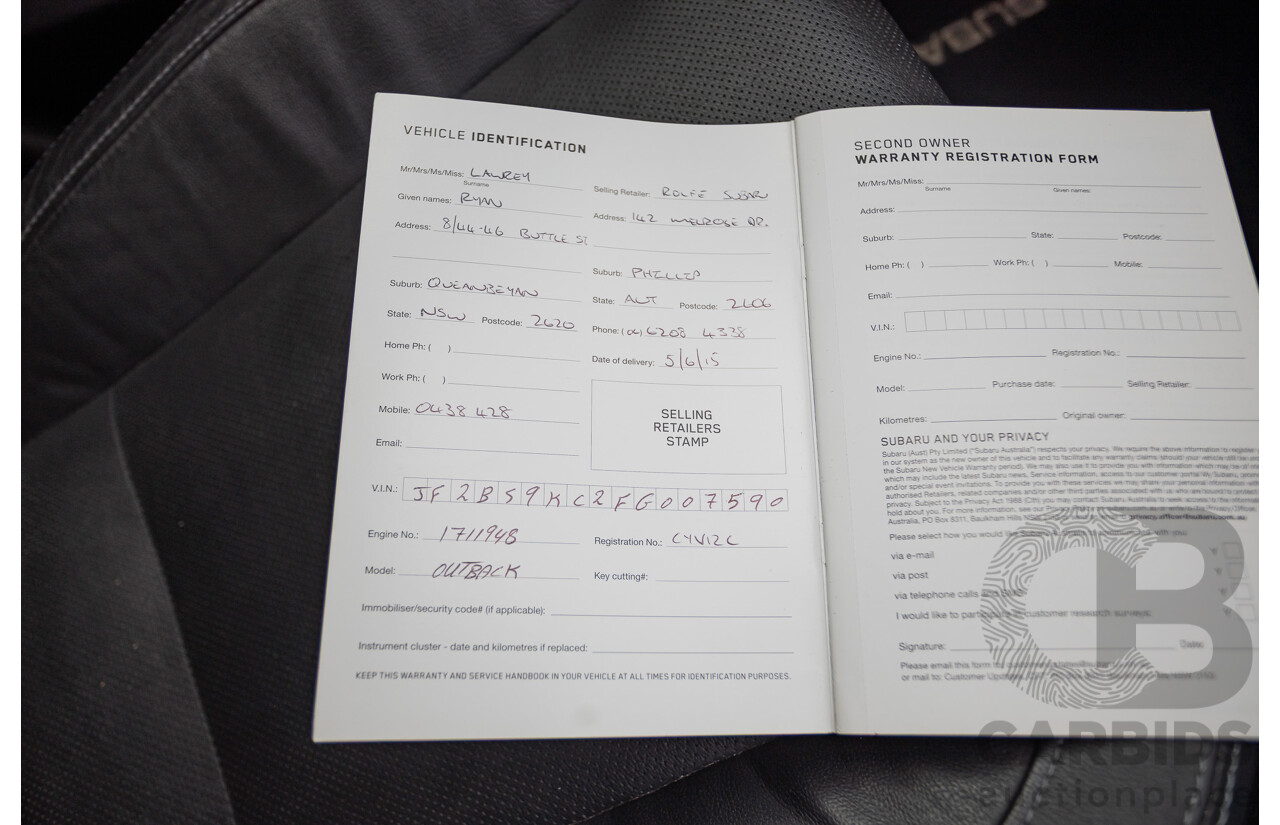 SUBA
VEHICLE IDENTIFICATION
Mr/Mrs/Ms/Miss: LAWREY
Surname
Given names: RYAN
Address: 8/44-46 BUTTLE ST
Suburb: QUEANBEYAN
State: NSW Postcode: 2620
Home Ph: ( )
Work Ph: ( )
Mobile: 0438 428
Email:
Selling Retailer: ROLFE SUBARU
Address: 142 MELROSE DR.
Suburb: PHILLIP
State: ACT Postcode: 2606
Phone: (02) 6208 4338
Date of delivery: 5/6/15
SELLING
RETAILERS
STAMP
V.I.N.: JF2BS9KC2FG007590
Engine No.: 1711948 Registration No.: CYV12C
Model: OUTBACK Key cutting#:
Immobiliser/security code# (if applicable):
Instrument cluster - date and kilometres if replaced:
KEEP THIS WARRANTY AND SERVICE HANDBOOK IN YOUR VEHICLE AT ALL TIMES FOR IDENTIFICATION PURPOSES.
SECOND OWNER
WARRANTY REGISTRATION FORM
Mr/Mrs/Ms/Miss:
Surname Given names:
Address:
Suburb: State: Postcode:
Home Ph: ( ) Work Ph: ( ) Mobile:
Email:
V.I.N.:
Engine No.: Registration No.:
Model: Purchase date: Selling Retailer:
Kilometres: Original owner:
SUBARU AND YOUR PRIVACY
Subaru (Aust) Pty Limited ("Subaru Australia") respects your privacy. We require the above information to register
in our system as the new owner of this vehicle and to facilitate any warranty claims throughout your vehicle
the Subaru New Vehicle Warranty period). We may also use it to provide you with information which may be of
which may include the latest Subaru news, Service information, access to our customer portal My Subaru,
and/or special event invitations. To provide you with these services we may share your personal information
authorised Retailers, related companies and/or other third parties associated with us who are bound to
privacy. Subject to the Privacy Act 1988 (Cth) you may contact Subaru Australia to
hold about you. For more information, see our
Australia, PO Box 8311, Baulkham Hills NSW
Please select how you would like
via e-mail
via post
via telephone calls
I would like to participate in customer research surveys:
Signature: Date:
Please email this form to
or mail to: Customer
CB
CARBIDS
auctionplace